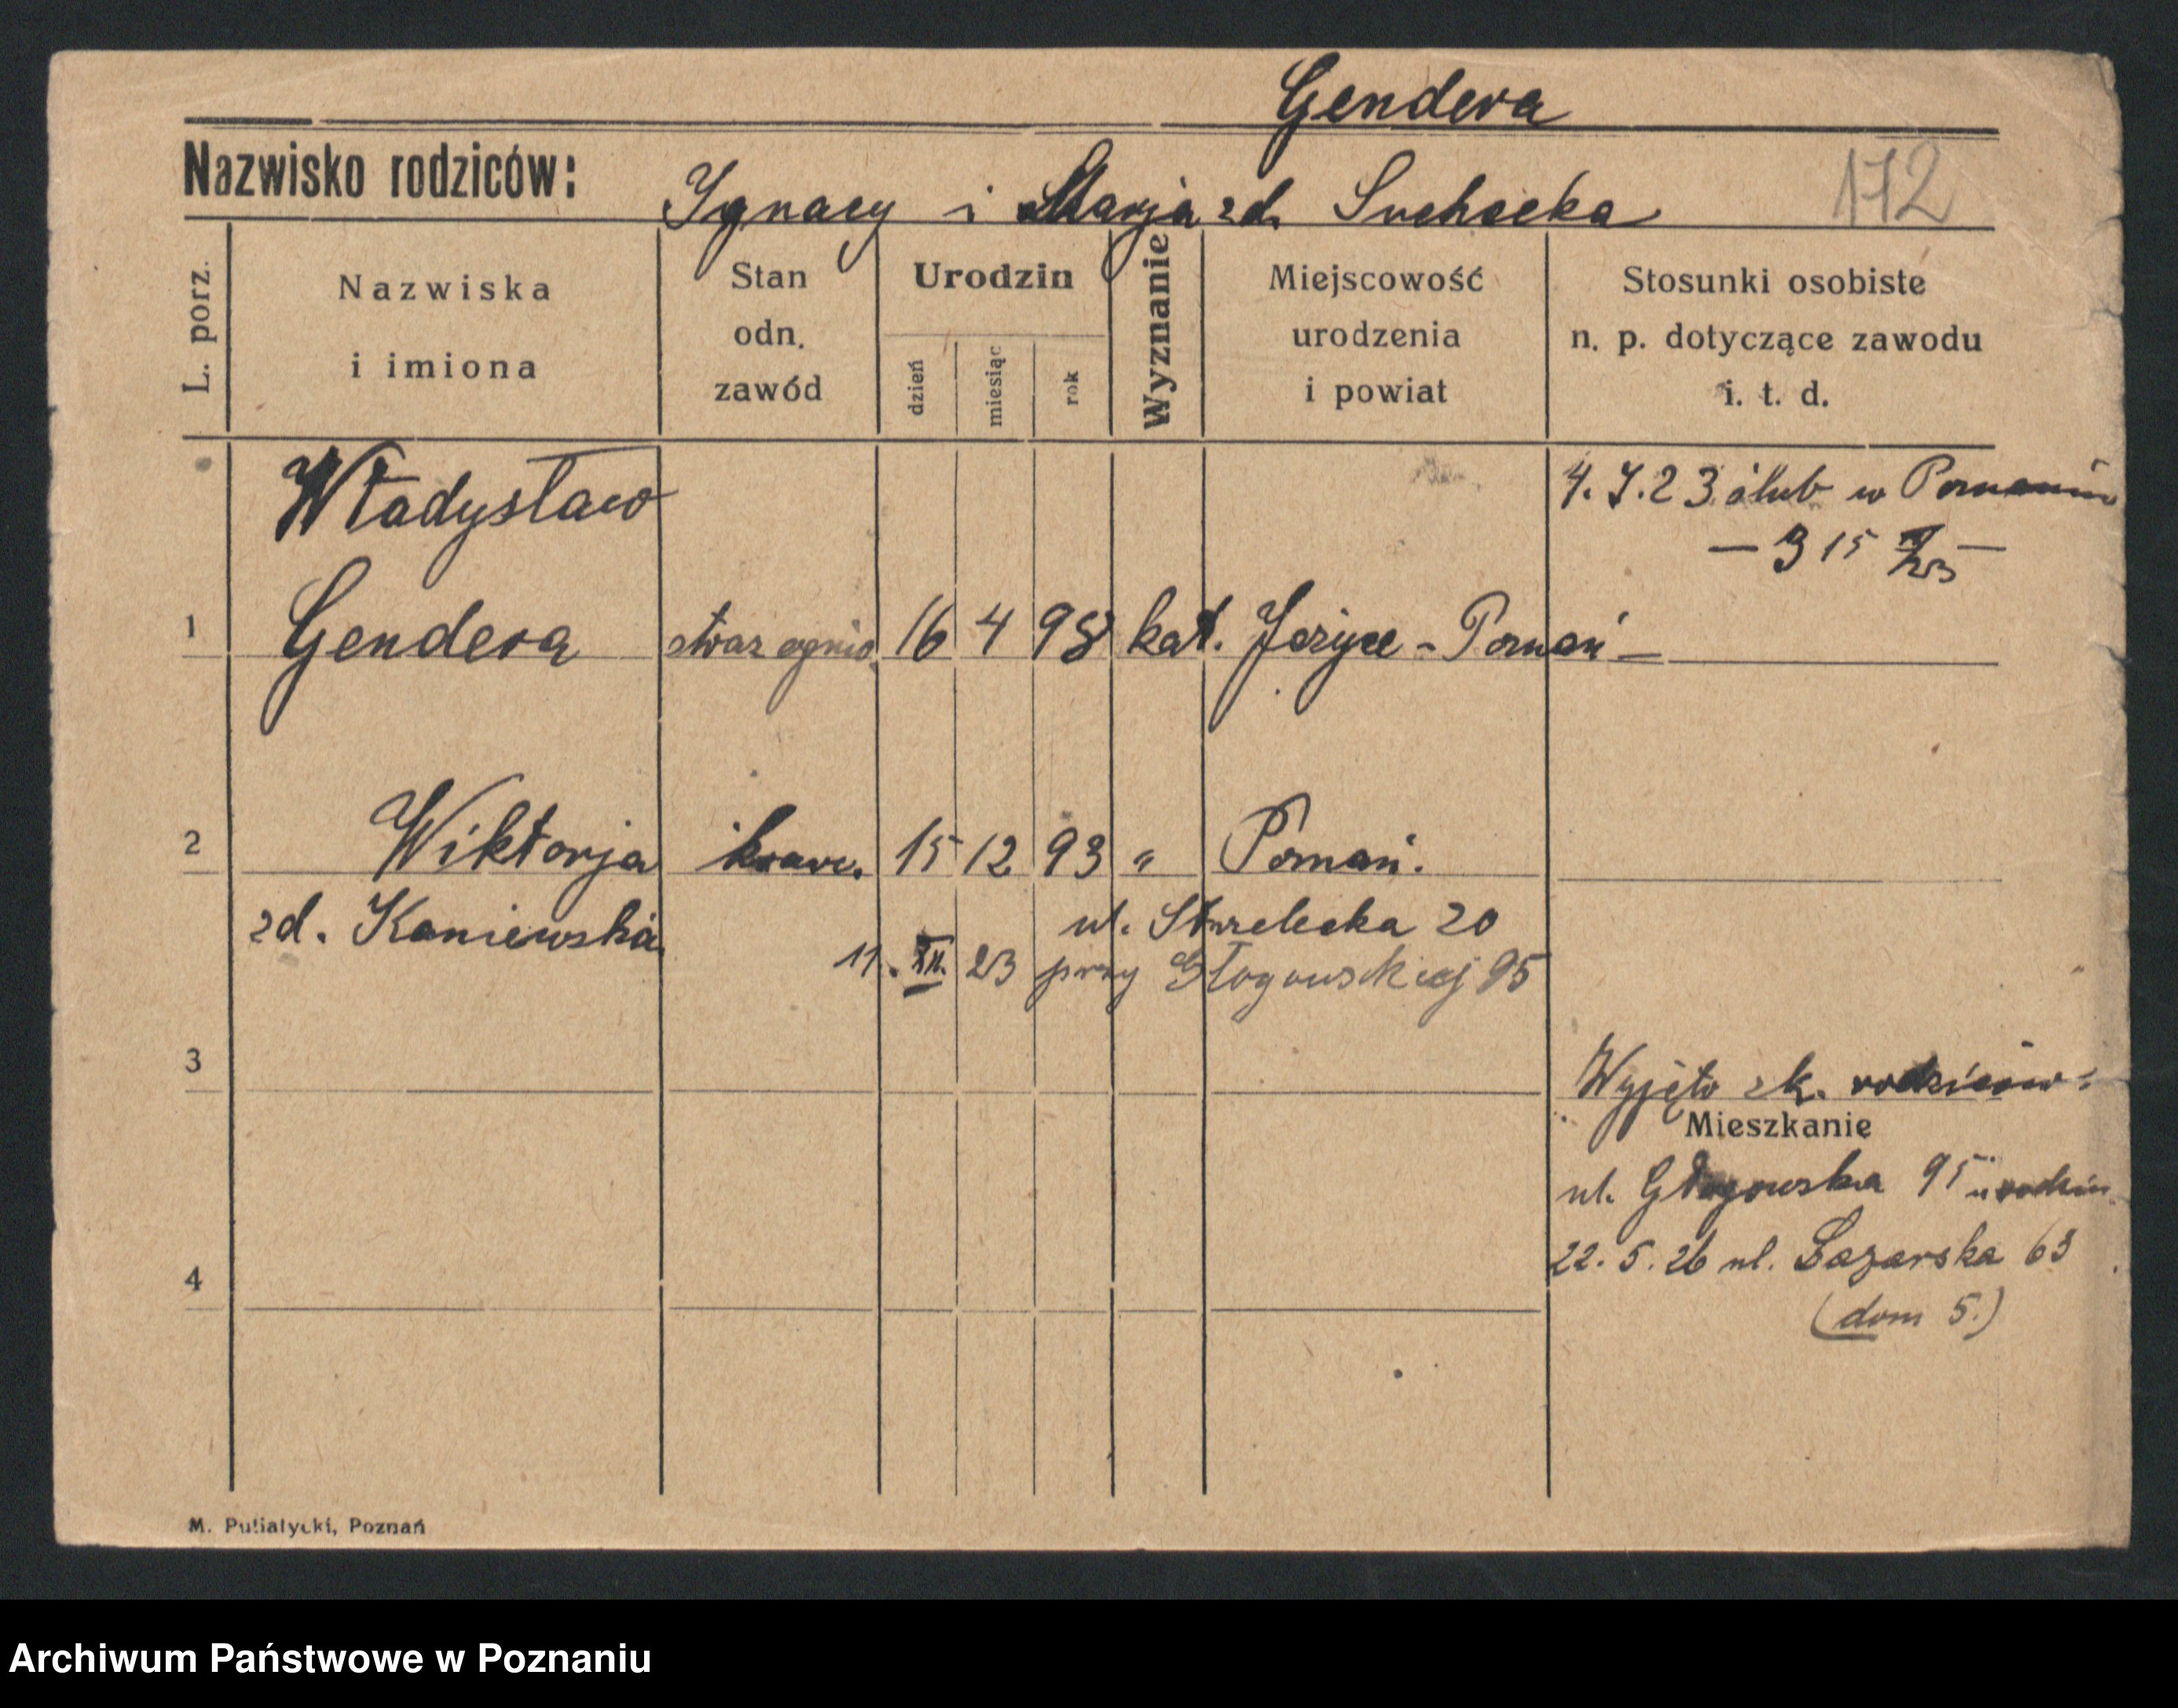 Gendera
Nazwisko rodziców: Ignacy i Marja zd. Suchocka
172
L. porz.
Nazwiska i imiona
Stan odn. zawód
Urodzin
dzień miesiąc rok
Wyznanie
Miejscowość urodzenia i powiat
Stosunki osobiste n. p. dotyczące zawodu i. t. d.
Władysław
4. 7. 23 ślub w Poznaniu
— 315
1 Gendera straz ognio. 16 4 98 kat. Jeżyce - Poznań —
2 Wiktorja kraw. 15 12 93 " Poznań.
zd. Kaniewska
ul. Strzelecka 20
11. XII. 23 przy Głogowskiej 95
3
Wyjęto z k. rodziców.
Mieszkanie
ul. Głogowska 95 u rodzic.
4
22. 5. 26 ul. Łazarska 63
(dom 5.)
M. Putiatycki, Poznań
Archiwum Państwowe w Poznaniu